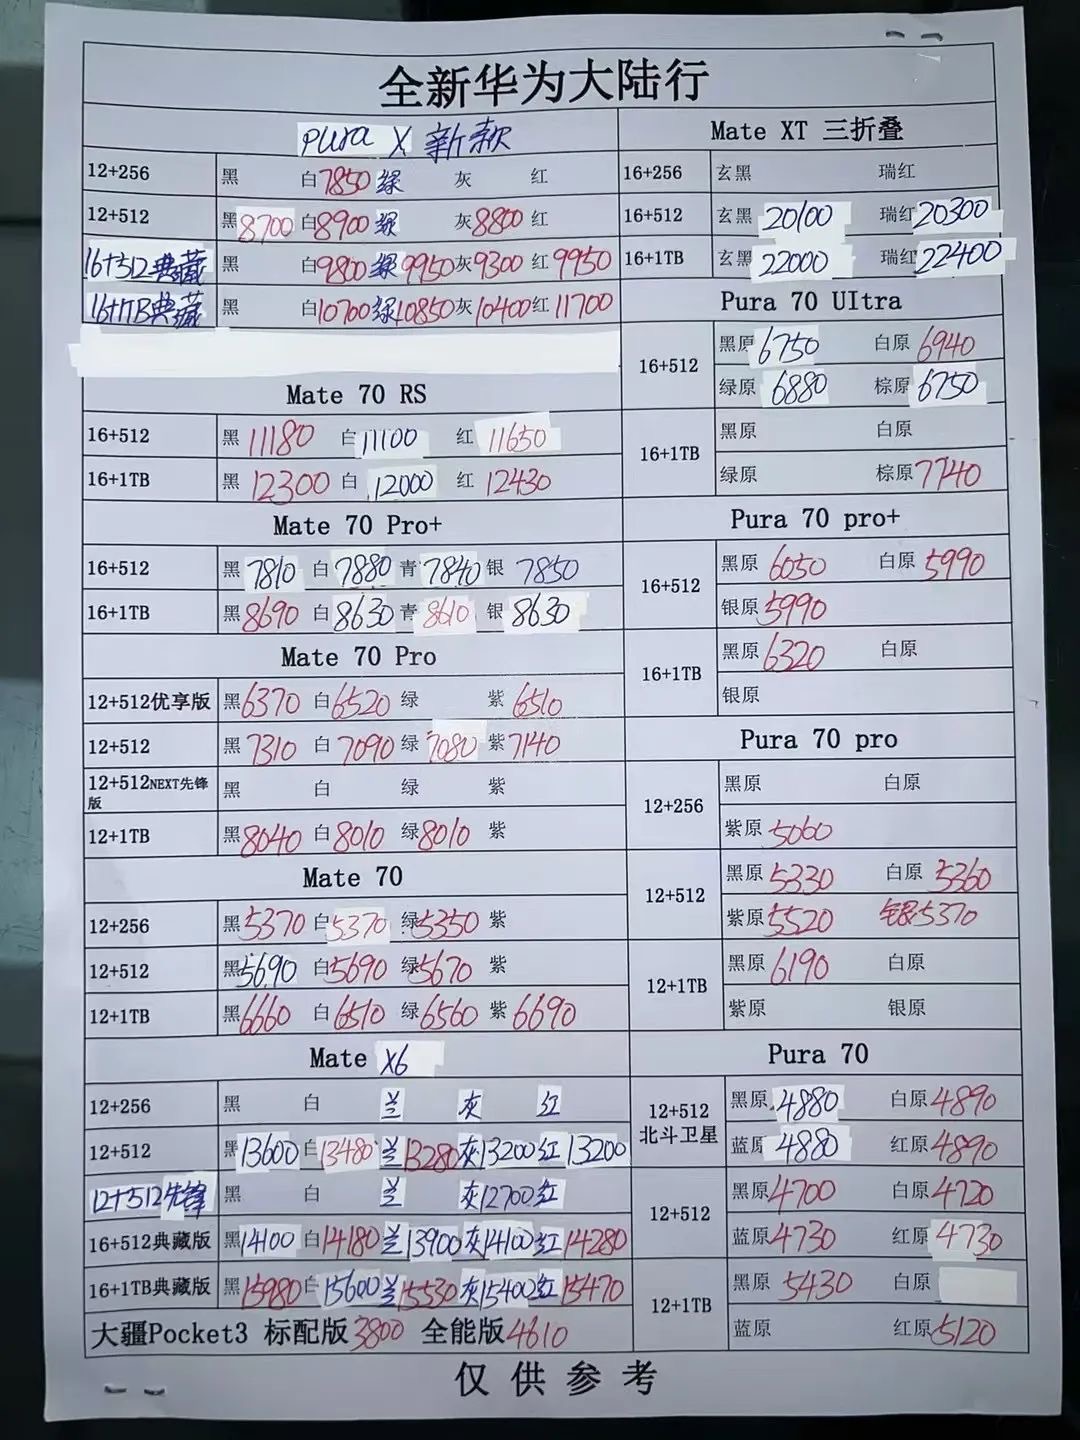 全新华为大陆行
Pura X 新款
12+256 黑 白7850 绿 灰 红
12+512 黑8700 白8900 绿 灰8800 红
16+512典藏 黑 白9800 绿9950 灰9300 红9950
16+1TB典藏 黑 白10700 绿10850 灰10400 红11700
Mate 70 RS
16+512 黑11180 白11100 红11650
16+1TB 黑12300 白12000 红12430
Mate 70 Pro+
16+512 黑7810 白7880 青7840 银7850
16+1TB 黑8690 白8630 青8610 银8630
Mate 70 Pro
12+512优享版 黑6370 白6520 绿 紫6510
12+512 黑7310 白7090 绿7080 紫7140
12+512NEXT先锋版 黑 白 绿 紫
12+1TB 黑8040 白8010 绿8010 紫
Mate 70
12+256 黑5370 白5370 绿5350 紫
12+512 黑5690 白5690 绿5670 紫
12+1TB 黑6660 白6510 绿6560 紫6690
Mate X6
12+256 黑 白 兰 灰 红
12+512 黑13600 白13480 兰13280 灰13200 红13200
12+512先锋 黑 白 兰 灰12700 红
16+512典藏版 黑14100 白14180 兰13900 灰14100 红14280
16+1TB典藏版 黑15980 白15600 兰15530 灰15400 红15470
大疆Pocket3 标配版3800 全能版4610
Mate XT 三折叠
16+256 玄黑 瑞红
16+512 玄黑20100 瑞红20300
16+1TB 玄黑22000 瑞红22400
Pura 70 UItra
16+512 黑原6750 白原6940
绿原6880 棕原6750
16+1TB 黑原 白原
绿原 棕原7740
Pura 70 pro+
16+512 黑原6050 白原5990
银原5990
16+1TB 黑原6320 白原
银原
Pura 70 pro
12+256 黑原 白原
紫原5060
12+512 黑原5330 白原5360
紫原5520 银5370
12+1TB 黑原6190 白原
紫原 银原
Pura 70
12+512 北斗卫星 黑原4880 白原4890
蓝原4880 红原4890
12+512 黑原4700 白原4720
蓝原4730 红原4730
12+1TB 黑原5430 白原
蓝原 红原5120
仅供参考